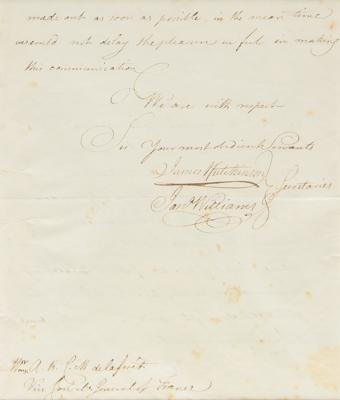 made out as soon as possible, in the mean time
we could not delay the pleasure we feel in making
this communication
We are with respect
Sir Your most obedient Servants
James Hutchinson
Secretaries
Jonn. Williams
A. R. C. M de la forêt
Vice Consul General of France